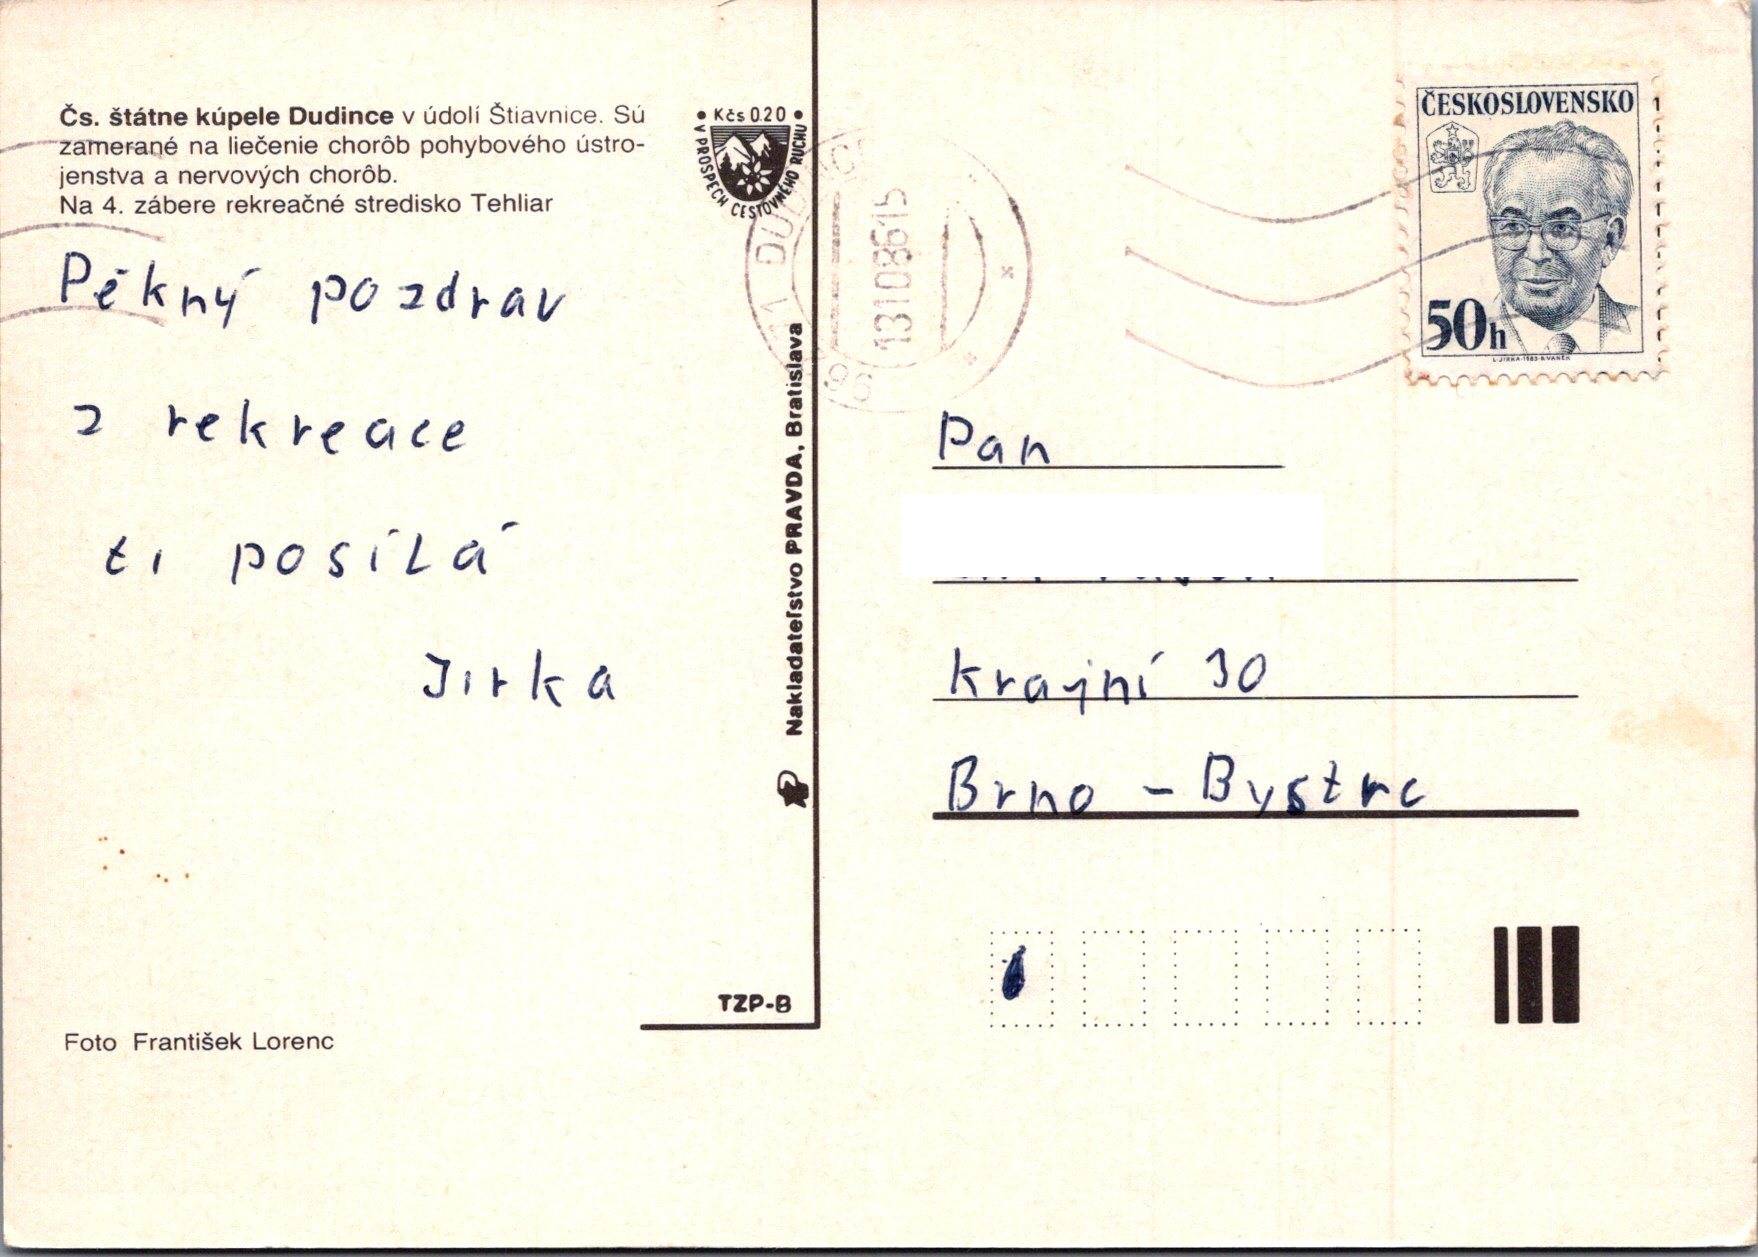 Čs. štátne kúpele Dudince v údolí Štiavnice. Sú
zamerané na liečenie chorôb pohybového ústro-
jenstva a nervových chorôb.
Na 4. zábere rekreačné stredisko Tehliar
• Kčs 0.20 •
V PROSPECH CESTOVNÉHO RUCHU
Pěkný pozdrav
z rekreace
ti posílá
Jirka
Nakladateľstvo PRAVDA, Bratislava
TZP-B
Foto František Lorenc
ČESKOSLOVENSKO
50h
L.JIRKA-1983-B.VANĚK
Pan
Krajní 30
Brno - Bystrc